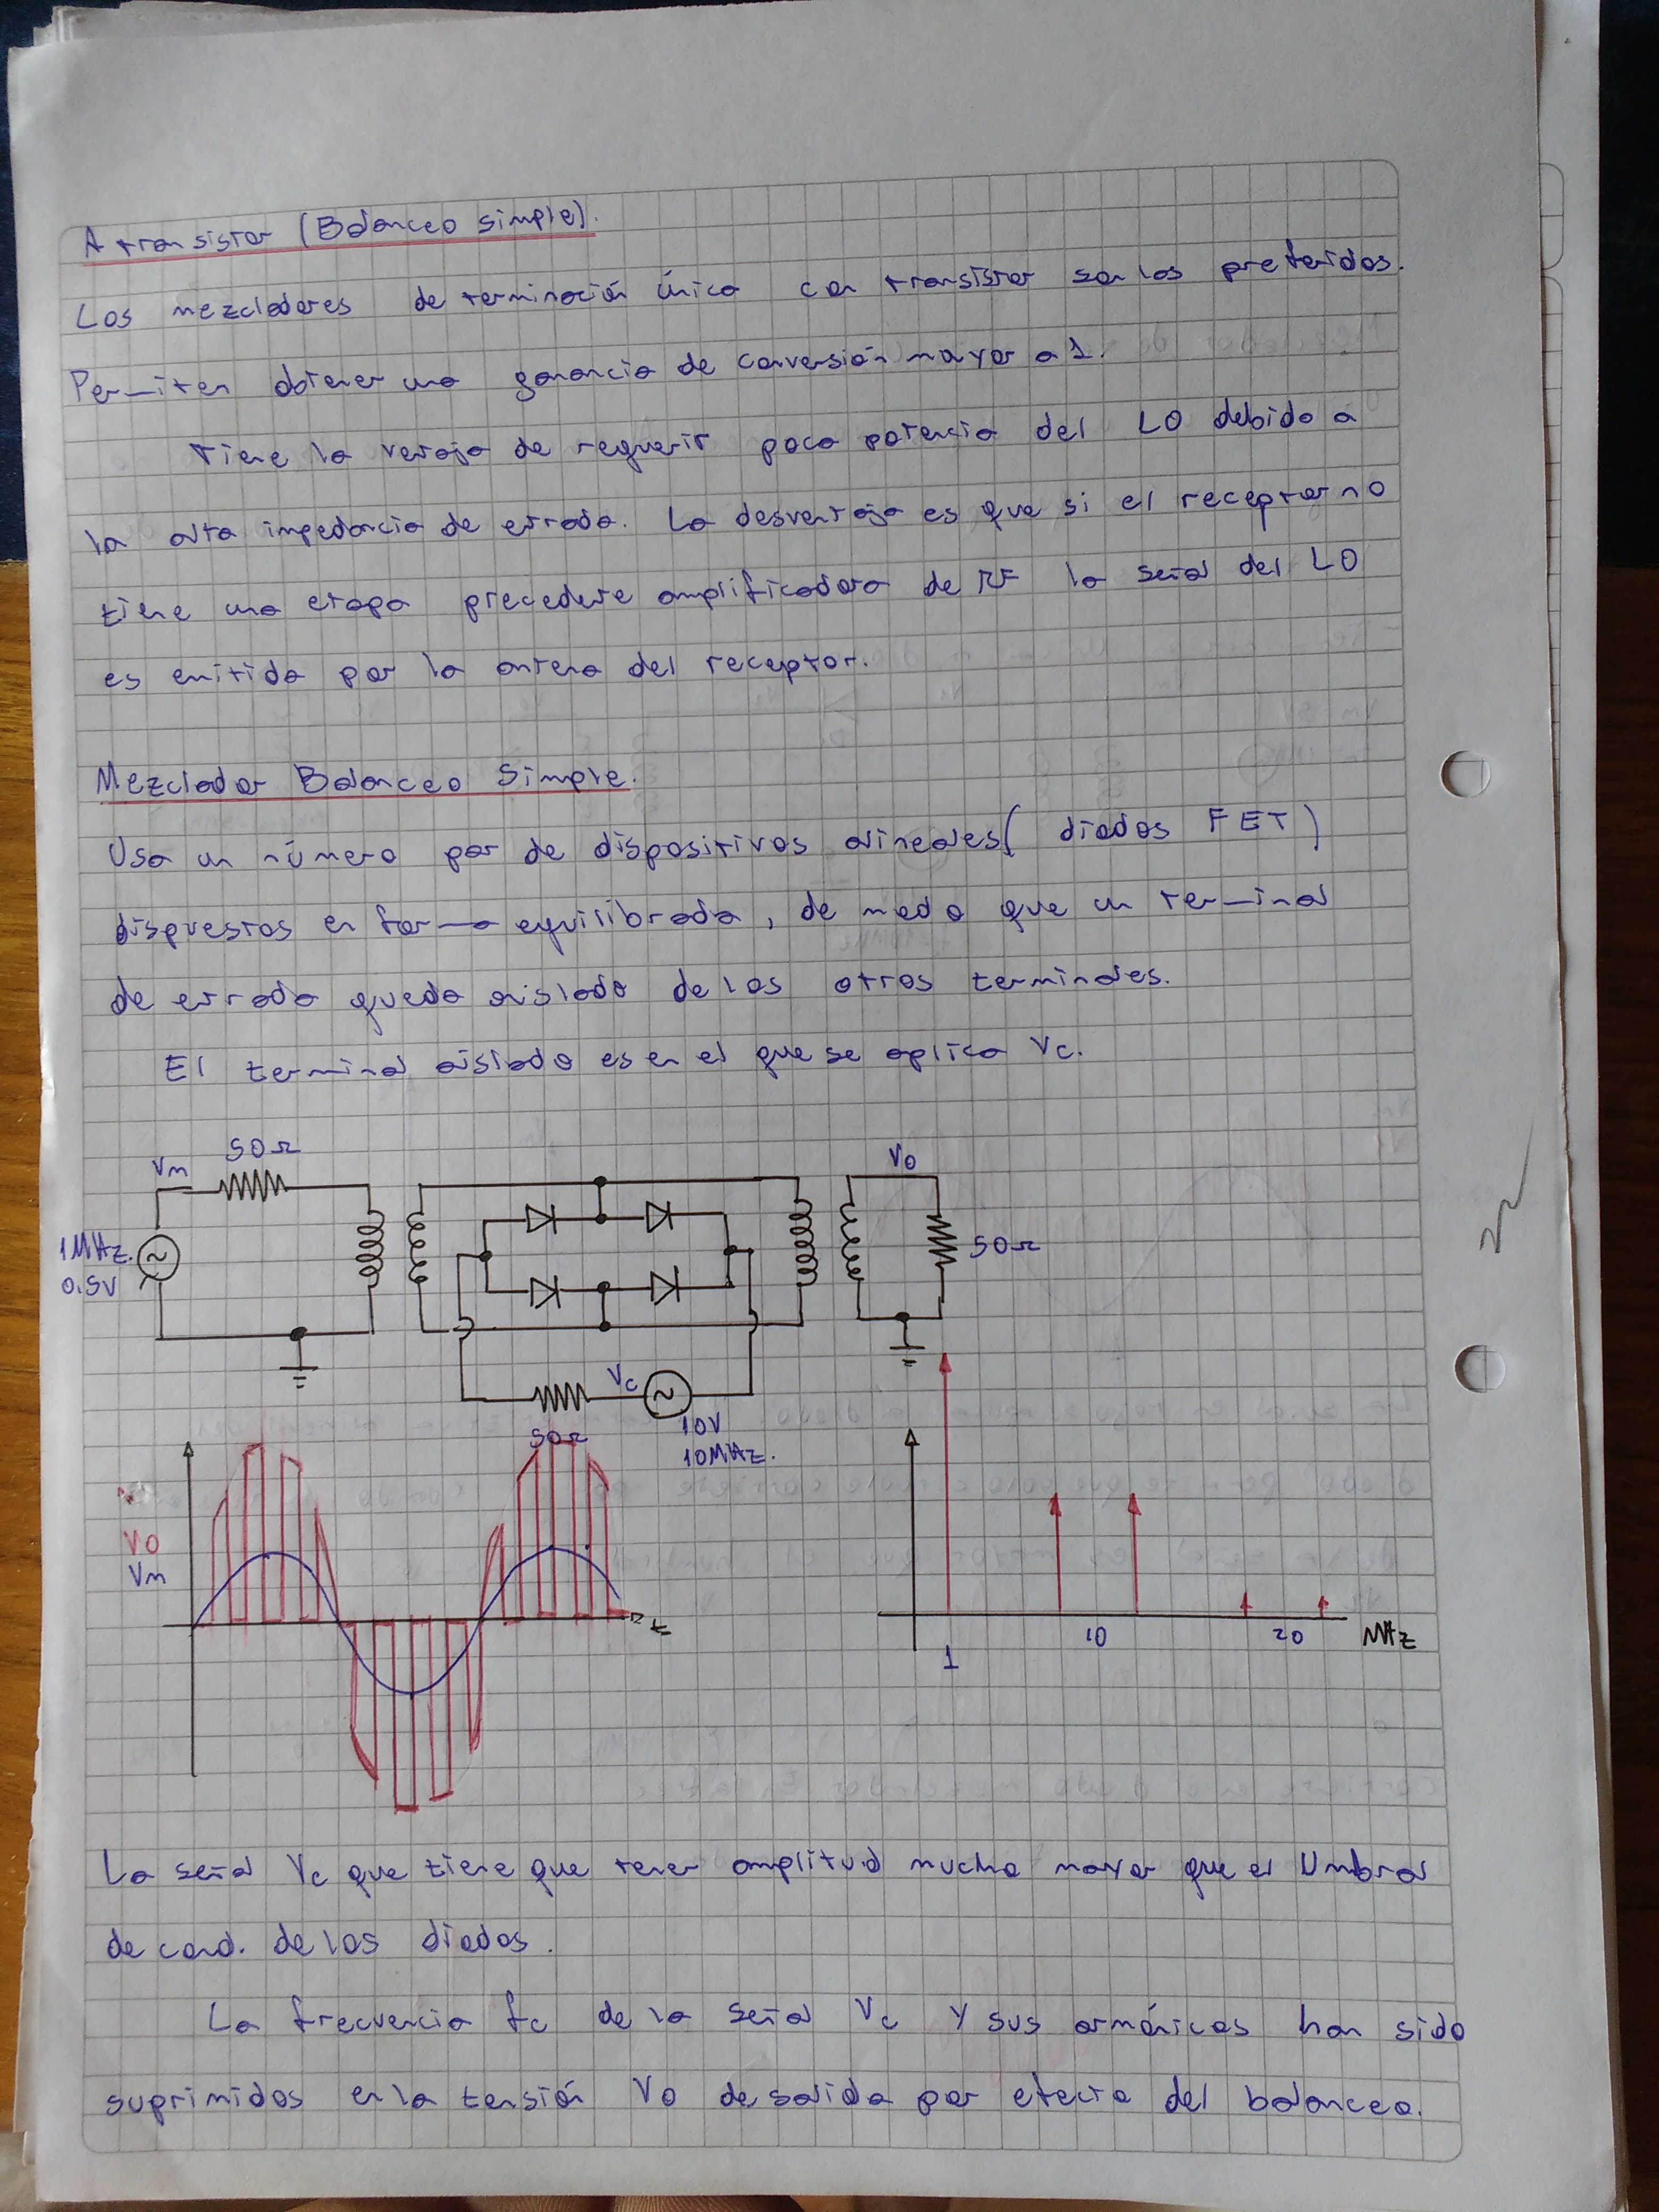 A transistor (Balanceo simple).
Los mezcladores de terminación única con transistor son los preferidos.
Permiten obtener una ganancia de conversión mayor a 1.
Tiene la ventaja de requerir poca potencia del LO debido a
la alta impedancia de entrada. La desventaja es que si el receptor no
tiene una etapa precedente amplificadora de RF la señal del LO
es emitida por la antena del receptor.
Mezclador Balanceo Simple.
Usa un número par de dispositivos alineales ( diodos FET )
dispuestos en forma equilibrada, de modo que un terminal
de entrada queda aislado de los otros terminales.
El terminal aislado es en el que se aplica Vc.
Vm 50Ω
Vo
1MHz.
0.5V
50Ω
Vc
50Ω
10V
10MHz.
Vo
Vm
t
1 10 20 MHz
La señal Vc que tiene que tener amplitud mucho mayor que el Umbral
de cond. de los diodos.
La frecuencia fc de la señal Vc y sus armónicos han sido
suprimidos en la tensión Vo de salida por efecto del balanceo.